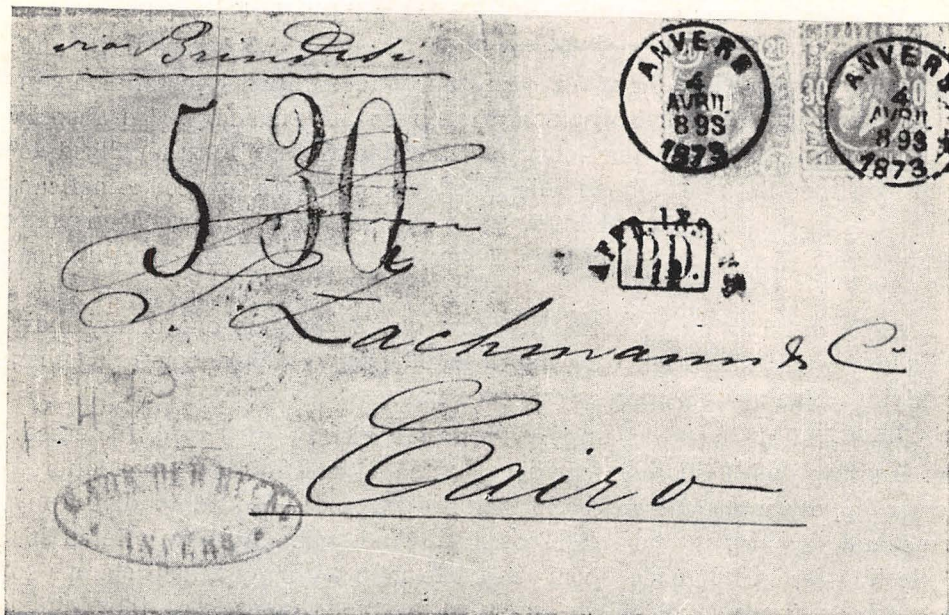 via Brindisi.
20
30
ANVERS
4
AVRIL
8 9S
1873
ANVERS
4
AVRIL
8 9S
1873
530
P.D.
Lachmann & Co
Cairo
1-4 73
ANVERS